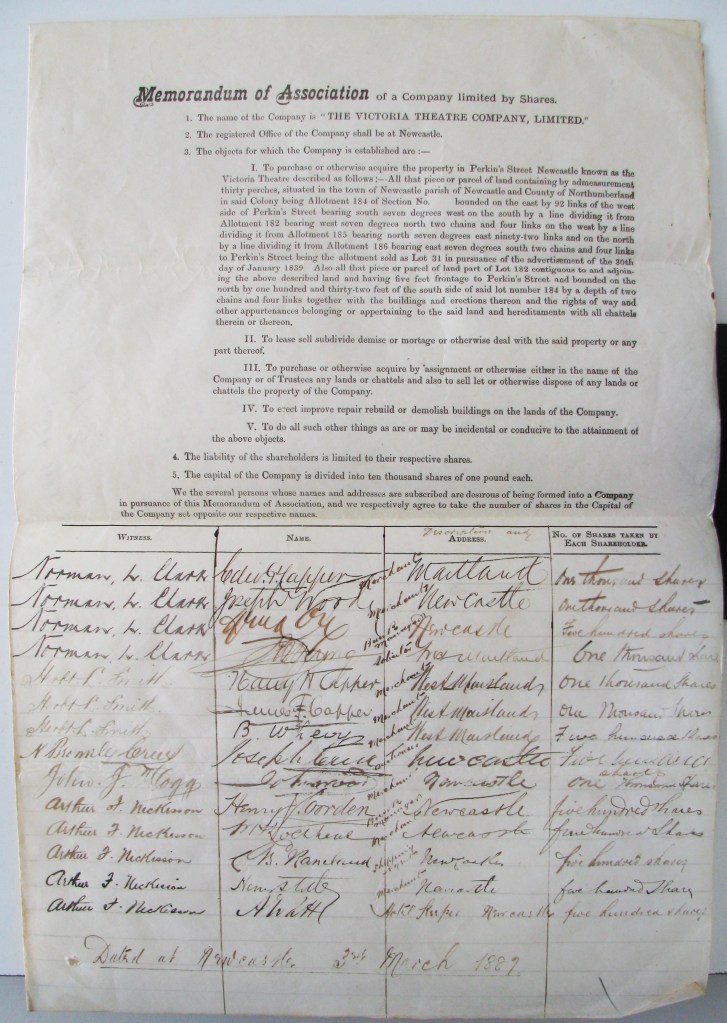 Memorandum of Association of a Company limited by Shares.
1. The name of the Company is "THE VICTORIA THEATRE COMPANY, LIMITED."
2. The registered Office of the Company shall be at Newcastle.
3. The objects for which the Company is established are :—
I. To purchase or otherwise acquire the property in Perkin's Street Newcastle known as the
Victoria Theatre described as follows :—All that piece or parcel of land containing by admeasurement
thirty perches, situated in the town of Newcastle parish of Newcastle and County of Northumberland
in said Colony being Allotment 184 of Section No. bounded on the east by 92 links of the west
side of Perkin's Street bearing south seven degrees west on the south by a line dividing it from
Allotment 182 bearing west seven degrees north two chains and four links on the west by a line
dividing it from Allotment 185 bearing north seven degrees east ninety-two links and on the north
by a line dividing it from Allotment 186 bearing east seven degrees south two chains and four links
to Perkin's Street being the allotment sold as Lot 31 in pursuance of the advertisement of the 30th
day of January 1839 Also all that piece or parcel of land part of Lot 182 contiguous to and adjoin-
ing the above described land and having five feet frontage to Perkin's Street and bounded on the
north by one hundred and thirty-two feet of the south side of said lot number 184 by a depth of two
chains and four links together with the buildings and erections thereon and the rights of way and
other appurtenances belonging or appertaining to the said land and hereditaments with all chattels
therein or thereon,
II. To lease sell subdivide demise or mortage or otherwise deal with the said property or any
part thereof,
III. To purchase or otherwise acquire by assignment or otherwise either in the name of the
Company or of Trustees any lands or chattels and also to sell let or otherwise dispose of any lands or
chattels the property of the Company.
IV. To erect improve repair rebuild or demolish buildings on the lands of the Company.
V. To do all such other things as are or may be incidental or conducive to the attainment of
the above objects.
4. The liability of the shareholders is limited to their respective shares.
5. The capital of the Company is divided into ten thousand shares of one pound each.
We the several persons whose names and addresses are subscribed are desirous of being formed into a Company
in pursuance of this Memorandum of Association, and we respectively agree to take the number of shares in the Capital of
the Company set opposite our respective names.
WITNESS. NAME. Description and ADDRESS. NO. OF SHARES TAKEN BY EACH SHAREHOLDER.
Norman, L. Clark Edw. Capper Merchant Maitland One thousand shares
Norman, L. Clark Joseph Wood Merchant Newcastle one thousand shares
Norman, L. Clark Newcastle Five hundred shares
Norman, L. Clark Solicitor West Maitland One thousand shares
Smith Harry Capper Merchant West Maitland one thousand shares
Smith Capper Merchant West Maitland one thousand shares
Smith B. West Maitland Five hundred shares
Joseph Newcastle Five hundred shares
John J. Newcastle one thousand shares
Arthur F. Nickisson Henry Gorden Newcastle five hundred shares
Arthur F. Nickisson Newcastle five hundred shares
Arthur F. Nickisson C. B. Newcastle five hundred shares
Arthur F. Nickisson Newcastle five hundred shares
Arthur F. Nickisson Hotel Keeper Newcastle five hundred shares
Dated at Newcastle. 3rd March 1889.